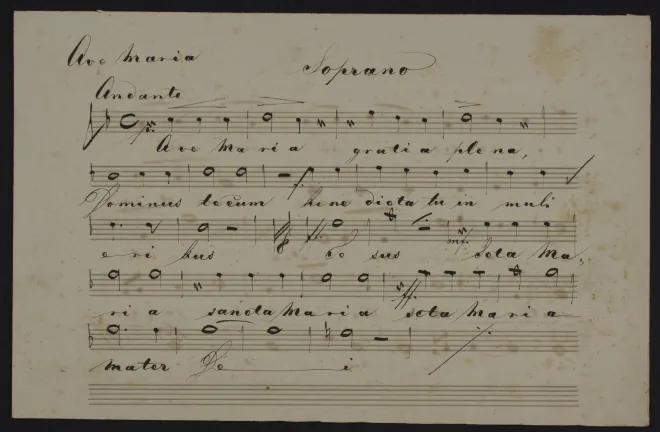 Ave Maria
Soprano
Andante
p.
A ve Ma ri a grati a ple na,
f.
Dominus tecum bene dicta tu in muli
ff. mf.
e ri bus Je sus Scta Ma„
ff.
ri a sancta Mari a scta Mari a
mater De i